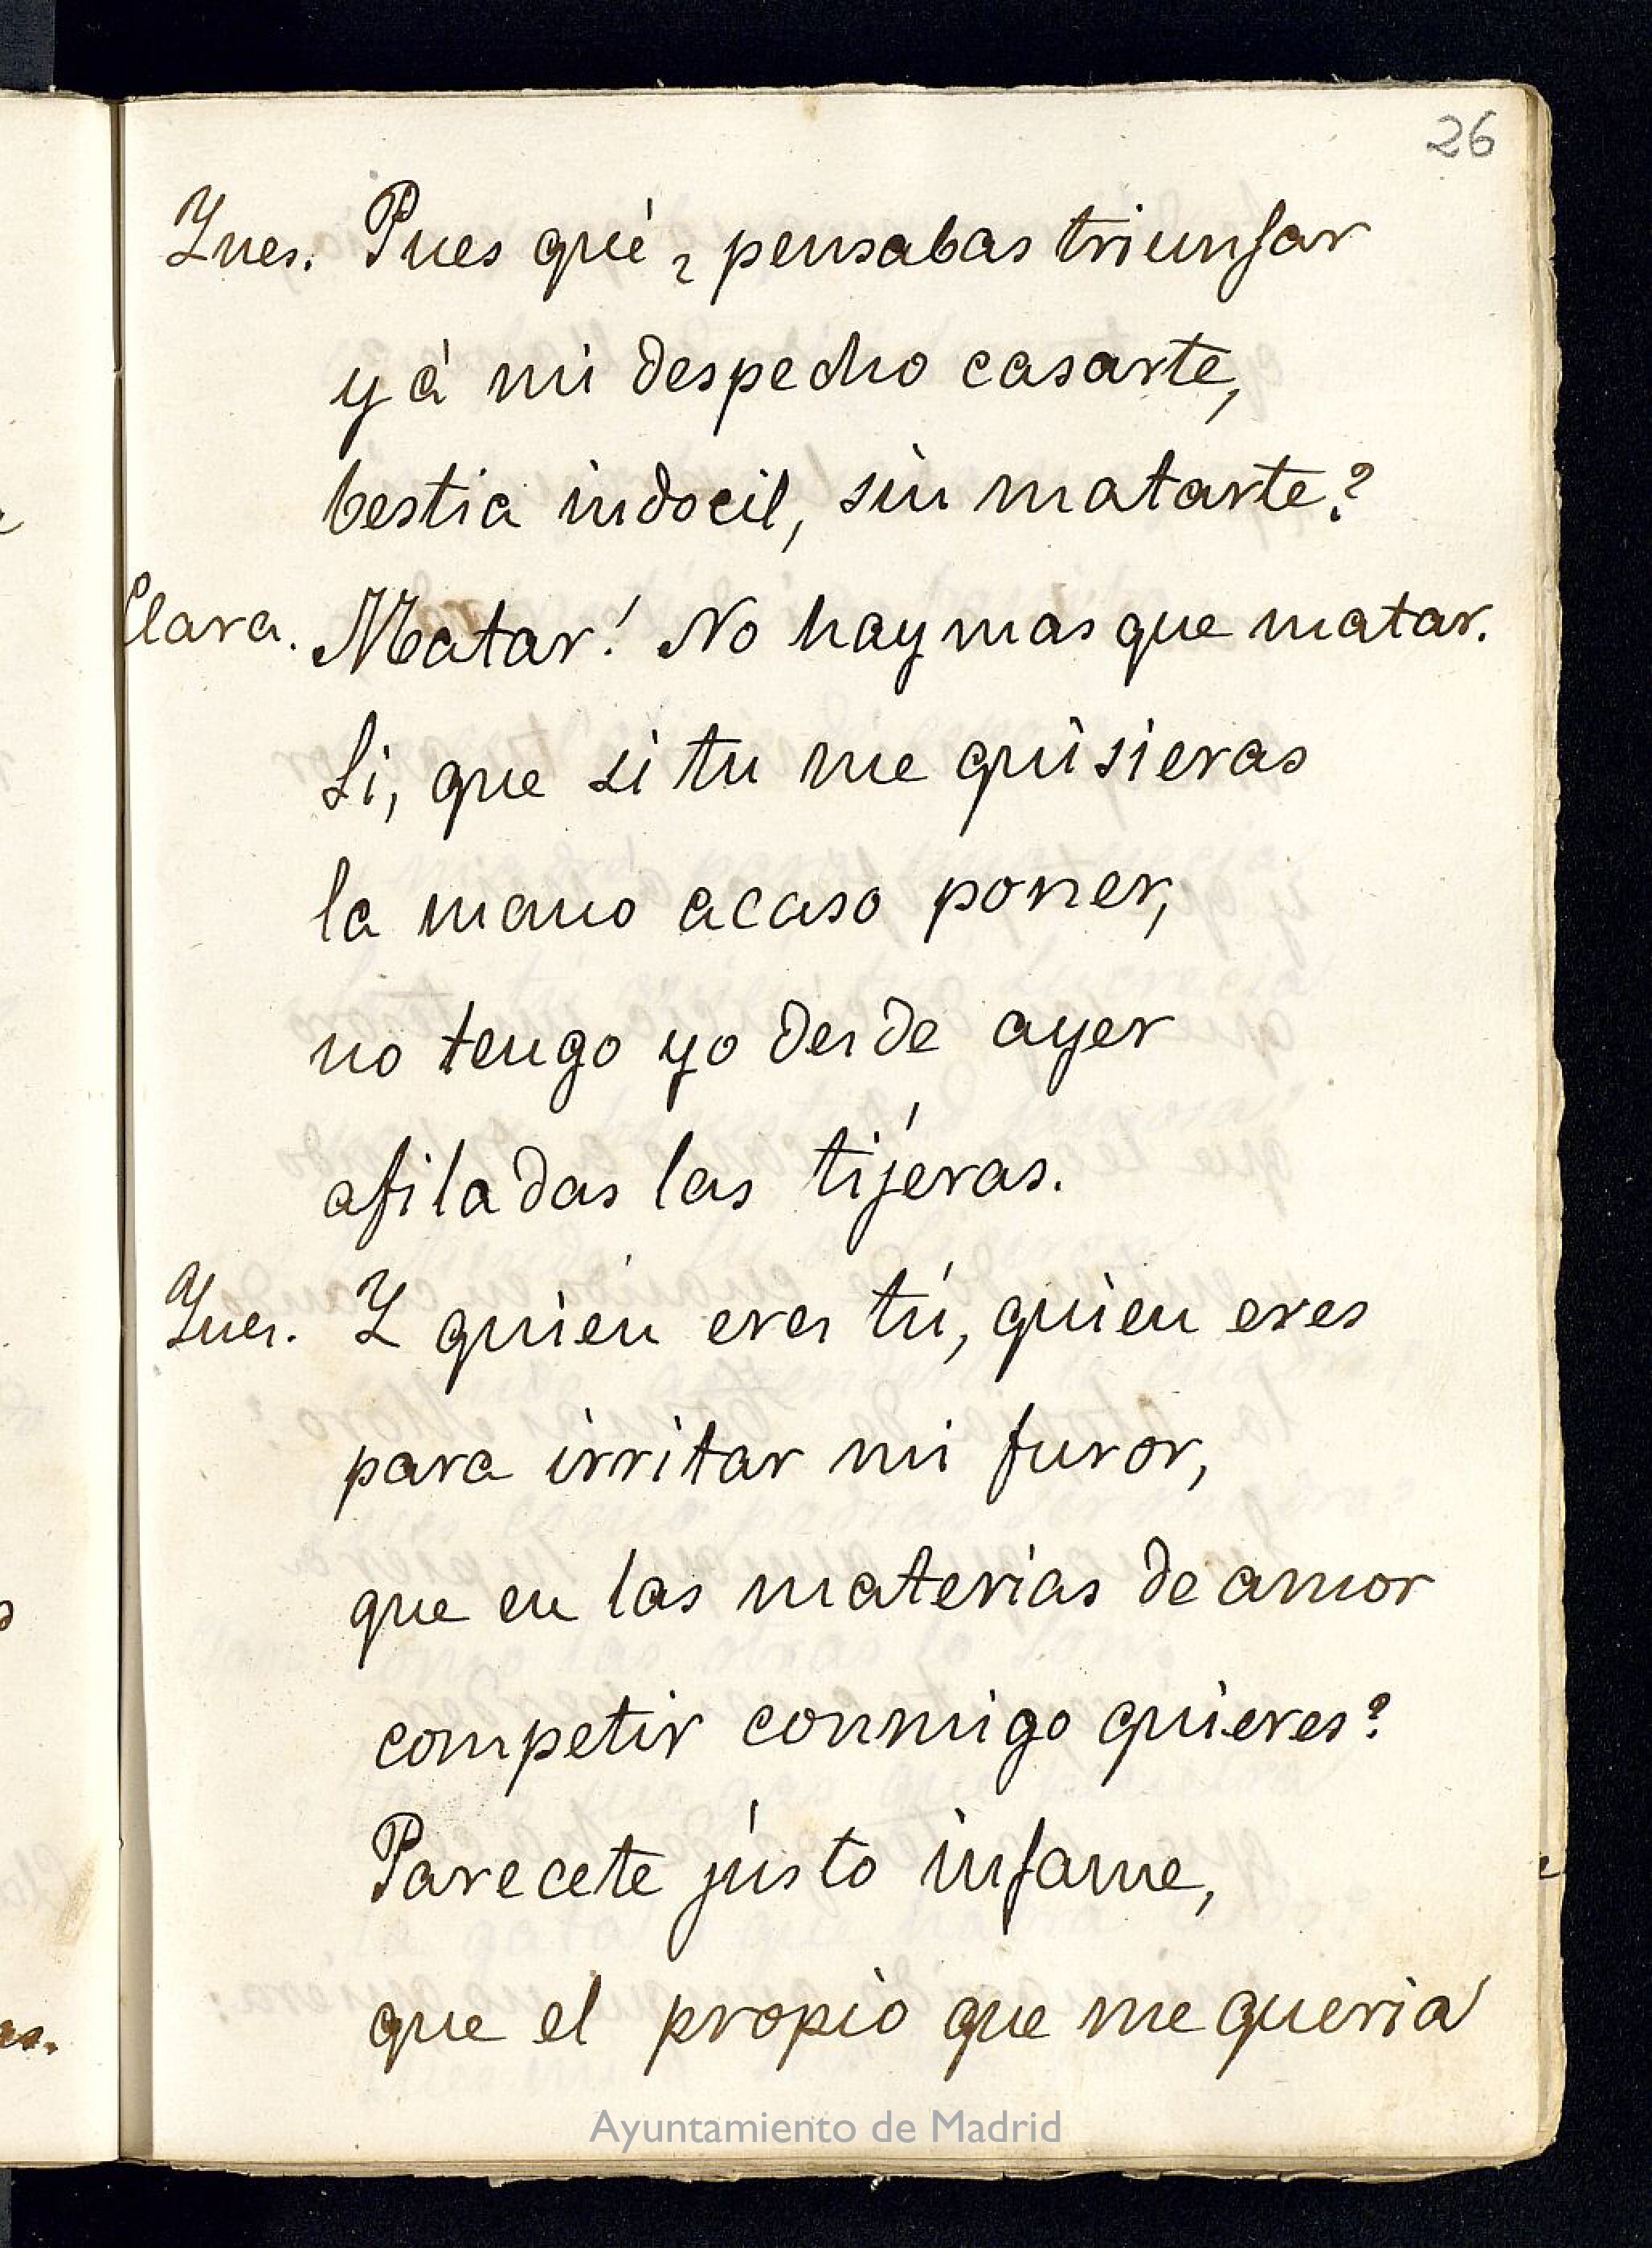 26
Ynes. Pues qué ¿ pensabas triunfar
y á mi despecho casarte,
bestia indocil, sin matarte?
Clara. Matar! No hay mas que matar.
Si, que si tu me quisieras
la mano acaso poner,
no tengo yo desde ayer
afiladas las tijeras.
Ynes. Y quien eres tú, quien eres
para irritar mi furor,
que en las materias de amor
competir conmigo quieres?
Parecete justo infame,
que el propio que me queria
Ayuntamiento de Madrid